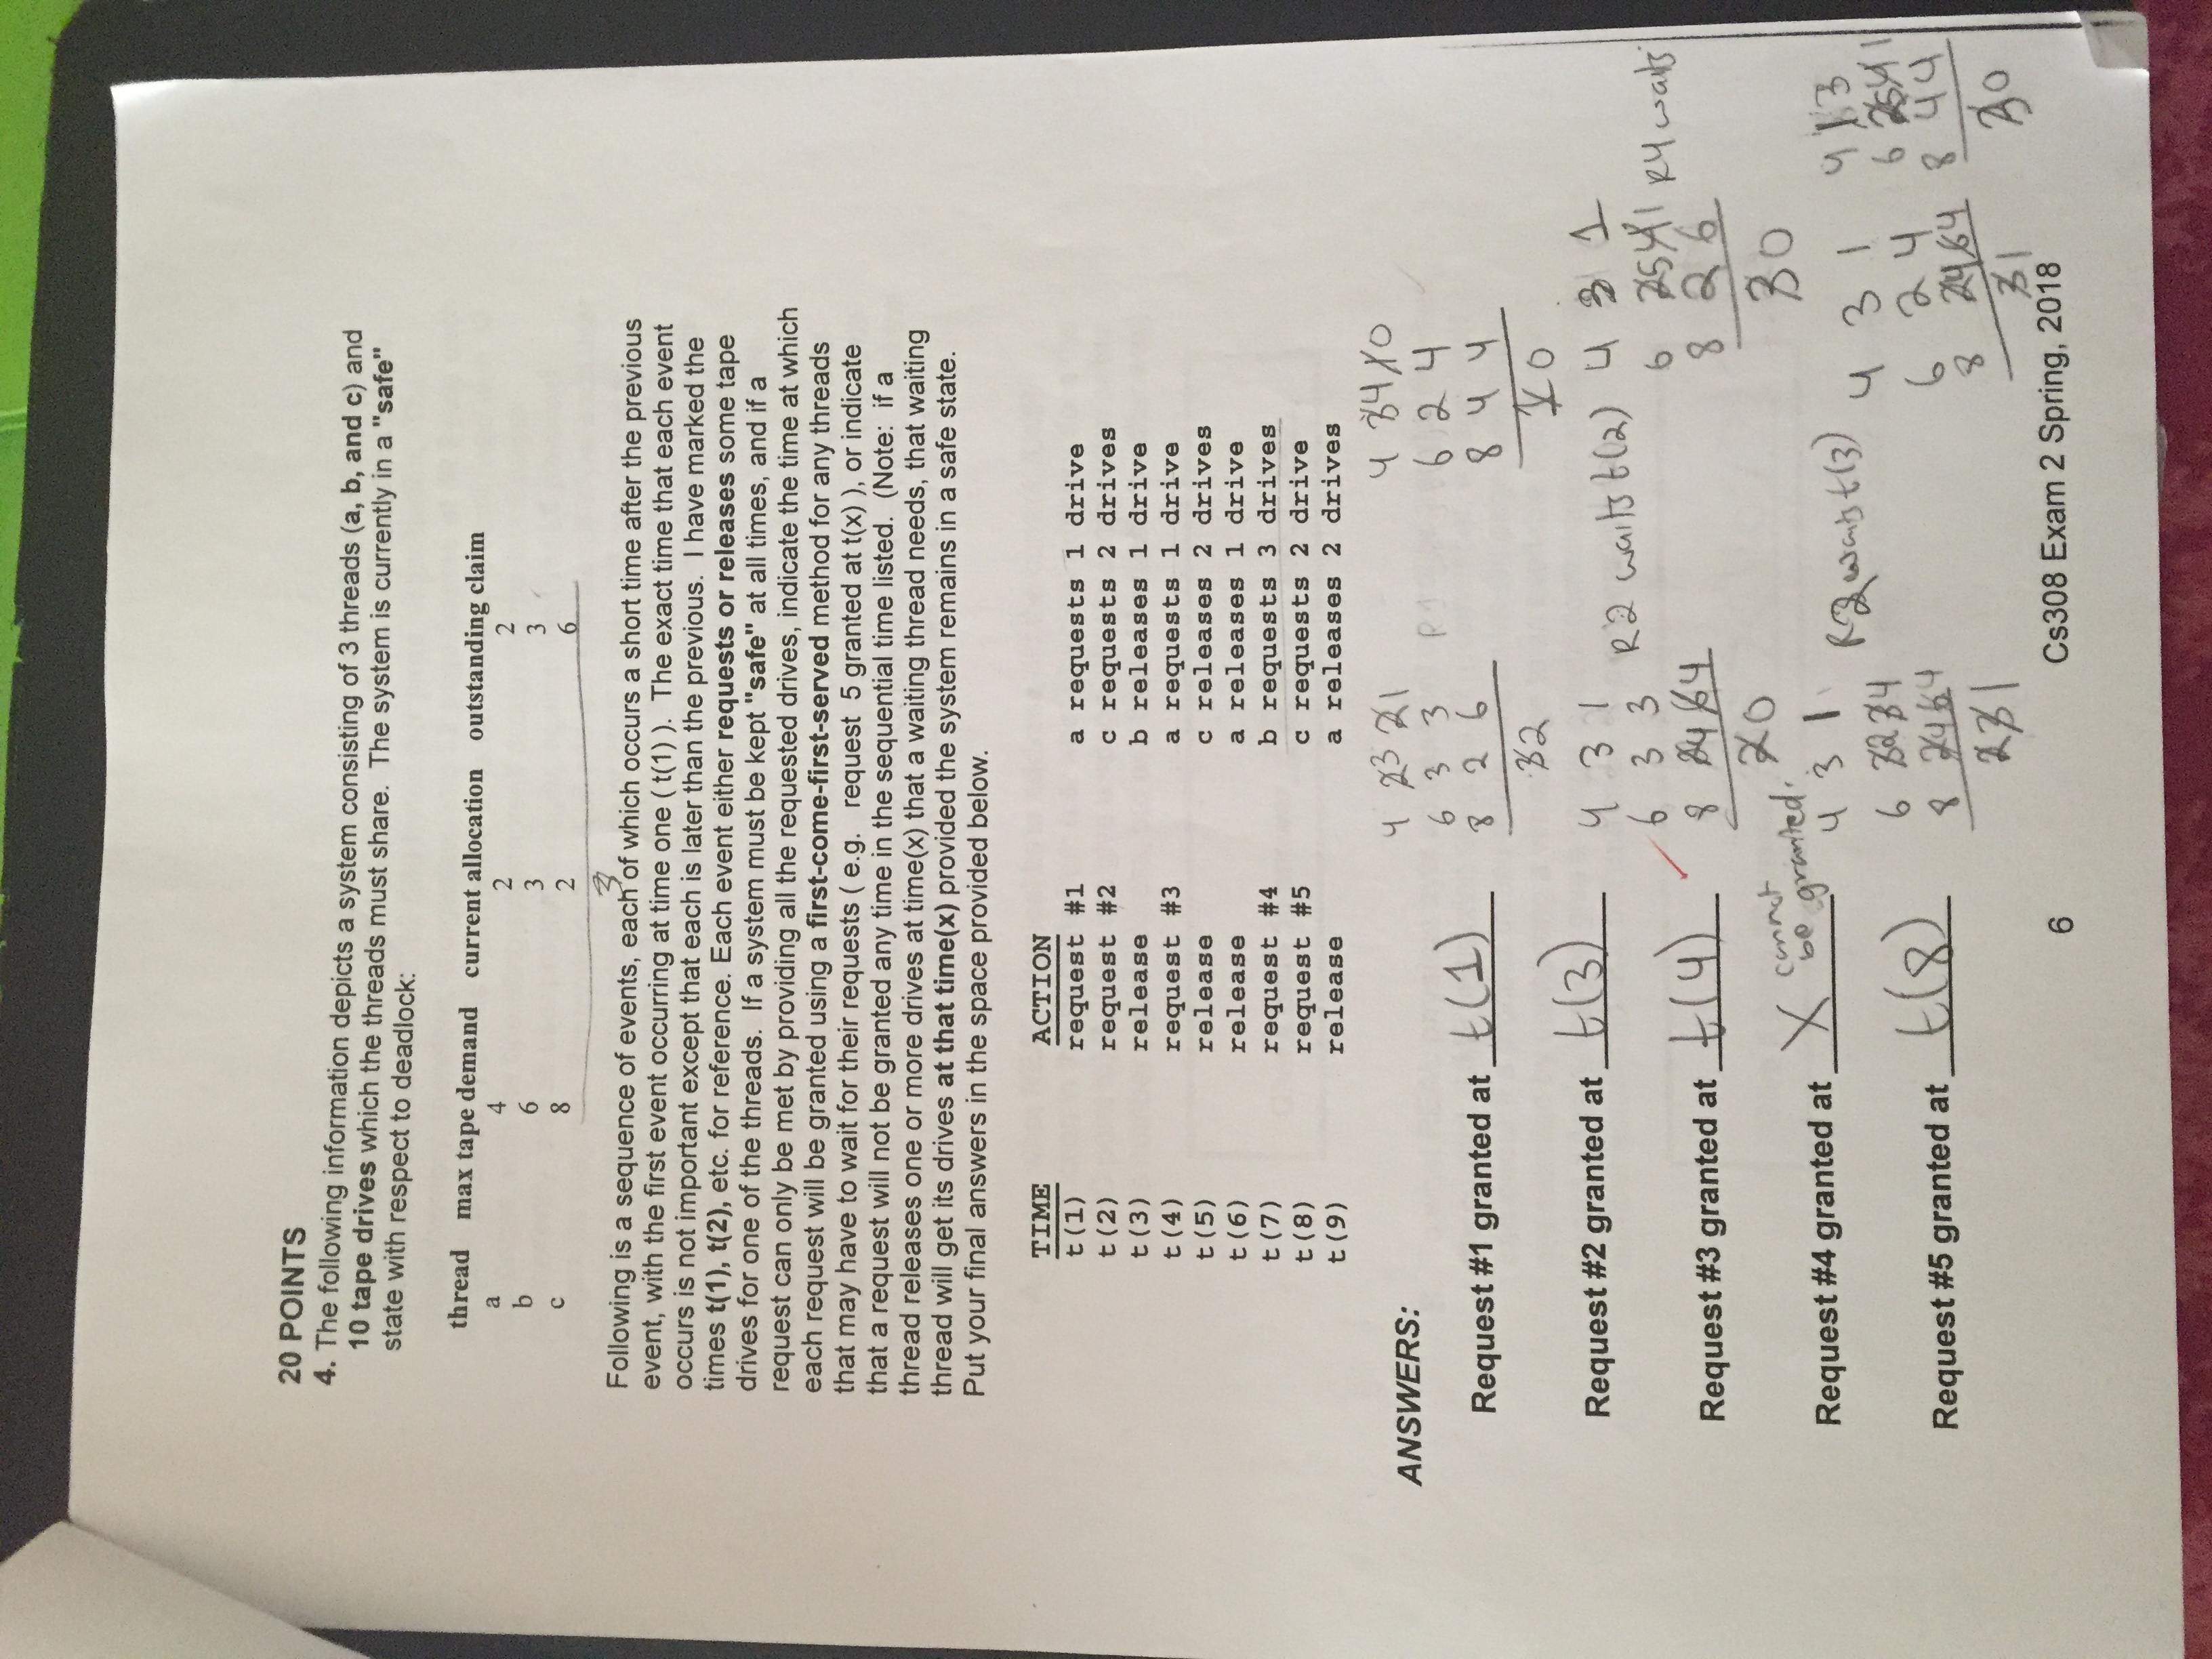 20 POINTS
4. The following information depicts a system consisting of 3 threads (a, b, and c) and
10 tape drives which the threads must share. The system is currently in a "safe"
state with respect to deadlock:
thread max tape demand current allocation outstanding claim
a 4 2 2
b 6 3 3
c 8 2 6
3
Following is a sequence of events, each of which occurs a short time after the previous
event, with the first event occurring at time one ( t(1) ). The exact time that each event
occurs is not important except that each is later than the previous. I have marked the
times t(1), t(2), etc. for reference. Each event either requests or releases some tape
drives for one of the threads. If a system must be kept "safe" at all times, and if a
request can only be met by providing all the requested drives, indicate the time at which
each request will be granted using a first-come-first-served method for any threads
that may have to wait for their requests ( e.g. request 5 granted at t(x) ), or indicate
that a request will not be granted any time in the sequential time listed. (Note: if a
thread releases one or more drives at time(x) that a waiting thread needs, that waiting
thread will get its drives at that time(x) provided the system remains in a safe state.
Put your final answers in the space provided below.
TIME ACTION
t(1) request #1 a requests 1 drive
t(2) request #2 c requests 2 drives
t(3) release b releases 1 drive
t(4) request #3 a requests 1 drive
t(5) release c releases 2 drives
t(6) release a releases 1 drive
t(7) request #4 b requests 3 drives
t(8) request #5 c requests 2 drive
t(9) release a releases 2 drives
ANSWERS:
4 23 21
6 3 3
8 2 6
32
4 34 10
6 2 4
8 4 4
10
Request #1 granted at t(1)
Request #2 granted at t(3)
4 3 1
6 3 3 R2 waits t(2)
8 24 64
20
4 3 1
6 25 41 R4 waits
8 2 6
30
Request #3 granted at t(4)
Request #4 granted at X cannot be granted.
4 3 1
6 32 34 R2 waits t(3)
8 24 64
231
4 3 1
6 2 4
8 24 64
31
4 1 3
6 25 41
8 4 4
20
Request #5 granted at t(8)
6 Cs308 Exam 2 Spring, 2018